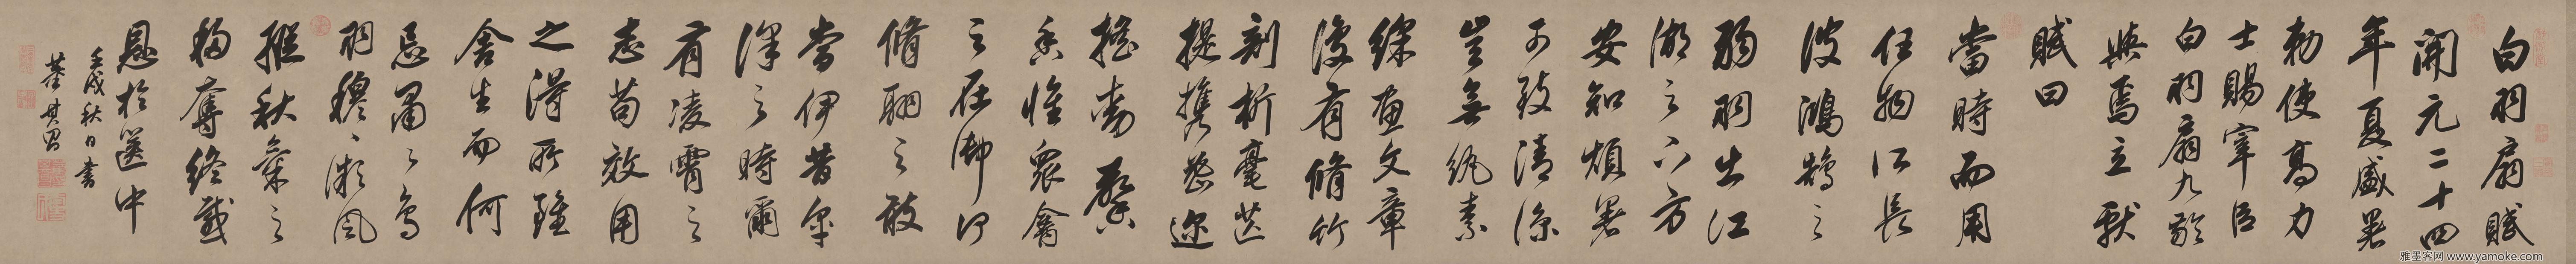 白羽扇賦
開元二十四
年夏盛暑
勅使高力
士賜宰臣
白羽扇九齡
與焉立獻
賦曰
當時而用
任物所長
彼鴻鵠之
弱羽出江
湖之下方
安知煩暑
可致清涼
豈無紈素
綵畫文章
復有脩竹
剖析毫芒
提攜密邇
搖動馨
香惟衆禽
之在御何
脩翮之敢
當伊昔皋
澤之時爾
有凌霄之
志苟效用
之得所雖
舍生而何
忌肅〻鳥
羽穆〻微風
縱秋氣之
移奪終感
恩於篋中
壬戌秋日書
董其昌
雅墨客网 www.yamoke.com